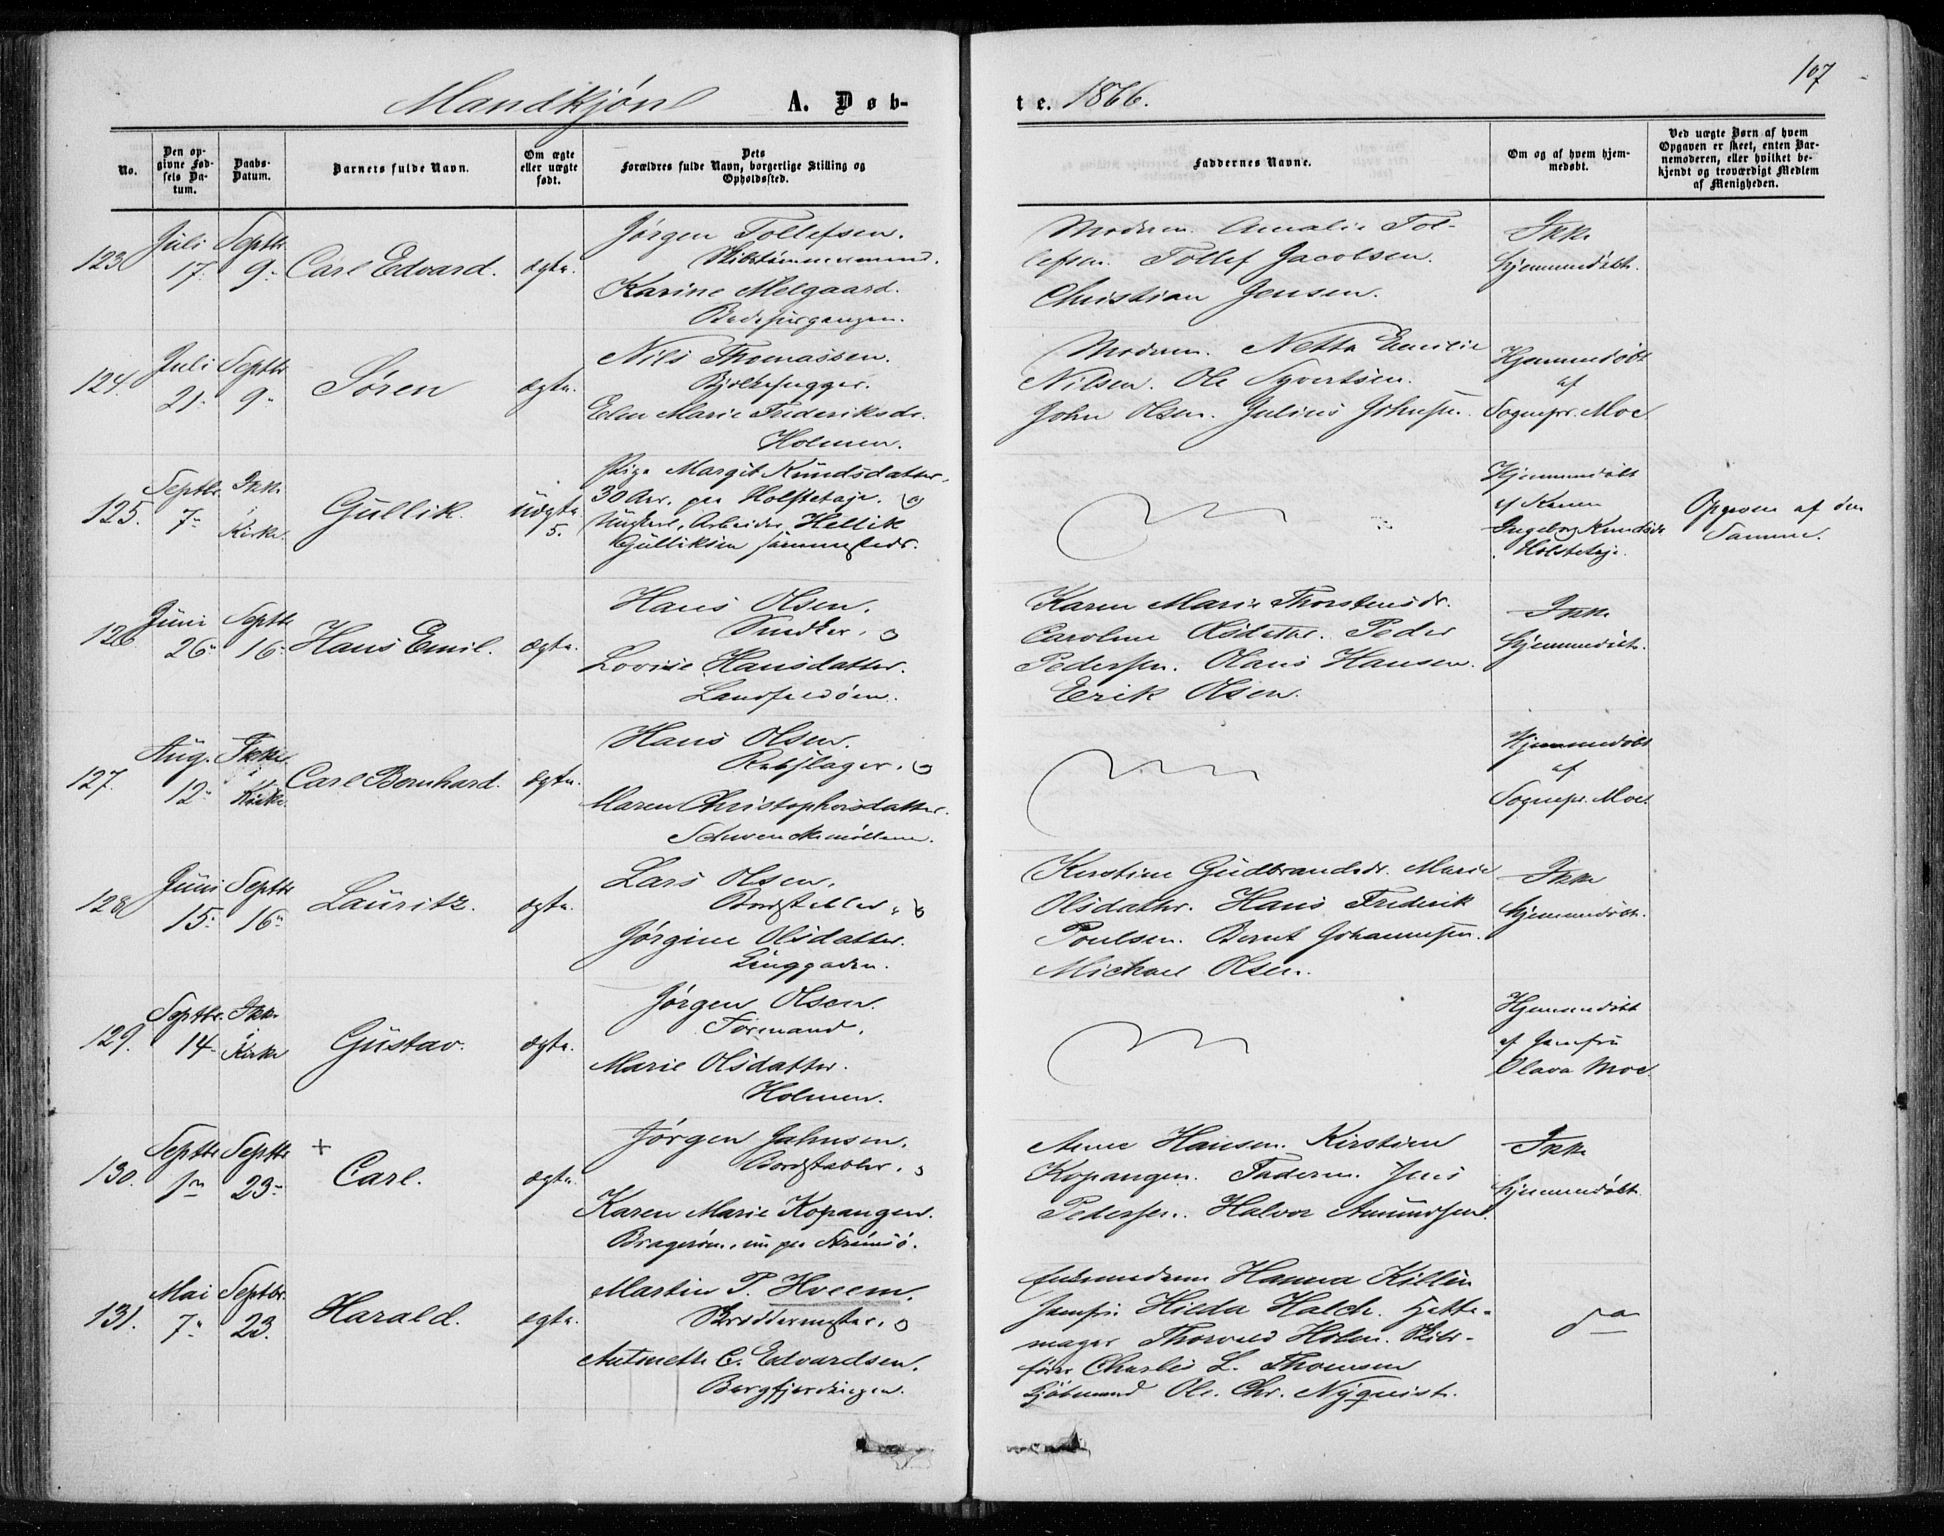 107
Mandkjøn A. Døb-
te. 1866.
No.
Den op-
givne Fød-
sels Da-
tum.
Daabs-
Datum.
Barnets fulde Navn.
Om ægte
eller uægte
født.
Dets
Forældres fulde Navn, borgerlige Stilling og
Opholdssted.
Faddernes Navne.
Om og af hvem hjem-
medøbt.
Ved uægte Børn af hvem
Opgaven er skeet, enten Bar-
nemoderen, eller hvilket be-
kjendt og troværdigt Medlem
af Menigheden.
123
Juli
17.
Septbr
9.
Carl Edvard.
ægte.
Jørgen Tollefsen.
Skibstømmermand.
Karine Melgaard.
Moderen. Amalie Tol-
lefsen. Tollef Jacobsen.
Christian Jensen.
Ikke
hjemmedøbt.
124.
Juli
21.
Septbr
9.
Søren
ægte.
Nils Thomassen.
Bjelkehugger.
Elen Marie Frideriksdr.
Holmen.
Moderen. Netta Emilie
Nilsen. Ole Syvertsen.
John Olsen. Julius Johnsen.
Hjemmedøbt
af
Sognepr. Moe
125.
Septbr.
7.
Ikke
i
Kirke.
Gullik.
uægte
5.
Pige Margit Knudsdatter,
30 Aar, paa Holstetaje. og
Ungkarl, Arbeider Hellik
Gulliksen sammesteds.
Hjemmedøbt
af Karen
Ingeborg Knudsdr
Holstetaje.
Opgaven af den
Samme.
126
Juni
26.
Septbr
16.
Hans Emil.
ægte.
Hans Olsen.
Snedker. o
Lovise Hansdatter.
Landfaldøen.
Karen Marie Thorstensdr.
Caroline Olsdatter. Peder
Pedersen. Olaus Hansen.
Erik Olsen.
Ikke
hjemmedøbt.
127.
Aug.
12.
Ikke
i
Kirke.
Carl Bernhard.
ægte.
Hans Olsen.
Rebslager. o
Maren Christophersdatter.
Schwenckemøllene.
Hjemmedøbt
af
Sognepr. Moe.
128
Juni
15.
Septbr
16.
Lauritz.
ægte.
Lars Olsen.
Bordstabler. o
Jørgine Olsdatter.
Kerstine Gudbrandsdr. Marie
Olsdatter. Hans Frederik
Poulsen. Bernt Johannesen.
Michael Olsen.
Ikke
hjemmedøbt.
129.
Septbr.
14.
Ikke
i
Kirke
Gustav.
ægte.
Jørgen Olsen.
Formand.
Marie Olsdatter.
Holmen.
Hjemmedøbt
af Jomfru
Olava Moe.
130.
Septbr
1.
Septbr
23.
+
Carl.
ægte.
Jørgen Jahnsen.
Bordstabler. o
Karen Marie Kopangen.
Bragernes, nu paa Strømsø.
Anne Hansen. Kirstien
Kopangen. Faderen. Jens
Pedersen. Halvor Amundsen.
Ikke
hjemmedøbt.
131.
Mai
7.
Septbr.
23.
Harald.
ægte.
Martin P. Hveem.
Skræddermester. o
Antonette C. Edvardsen.
Bergfjerdingen.
Hanna
Jomfru Hilda Halck. Hatte-
mager Thorvald Holm. Skibs-
fører Charles L. Thomsen
Ole Chr. Nyquist.
do